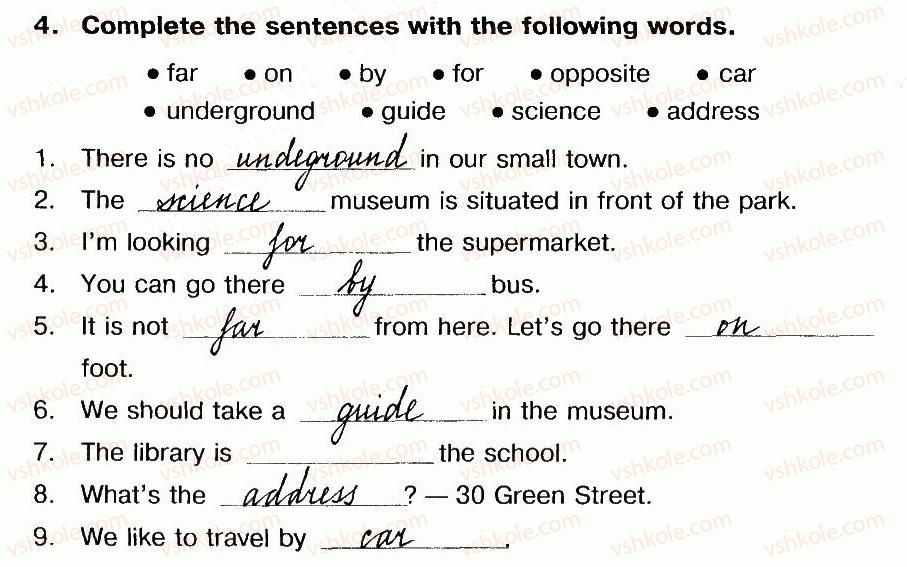 4. Complete the sentences with the following words.
• far • on • by • for • opposite • car
• underground • guide • science • address
1. There is no undeground in our small town.
2. The science museum is situated in front of the park.
3. I'm looking for the supermarket.
4. You can go there by bus.
5. It is not far from here. Let's go there on
foot.
6. We should take a guide in the museum.
7. The library is ____________ the school.
8. What's the address ? — 30 Green Street.
9. We like to travel by car.